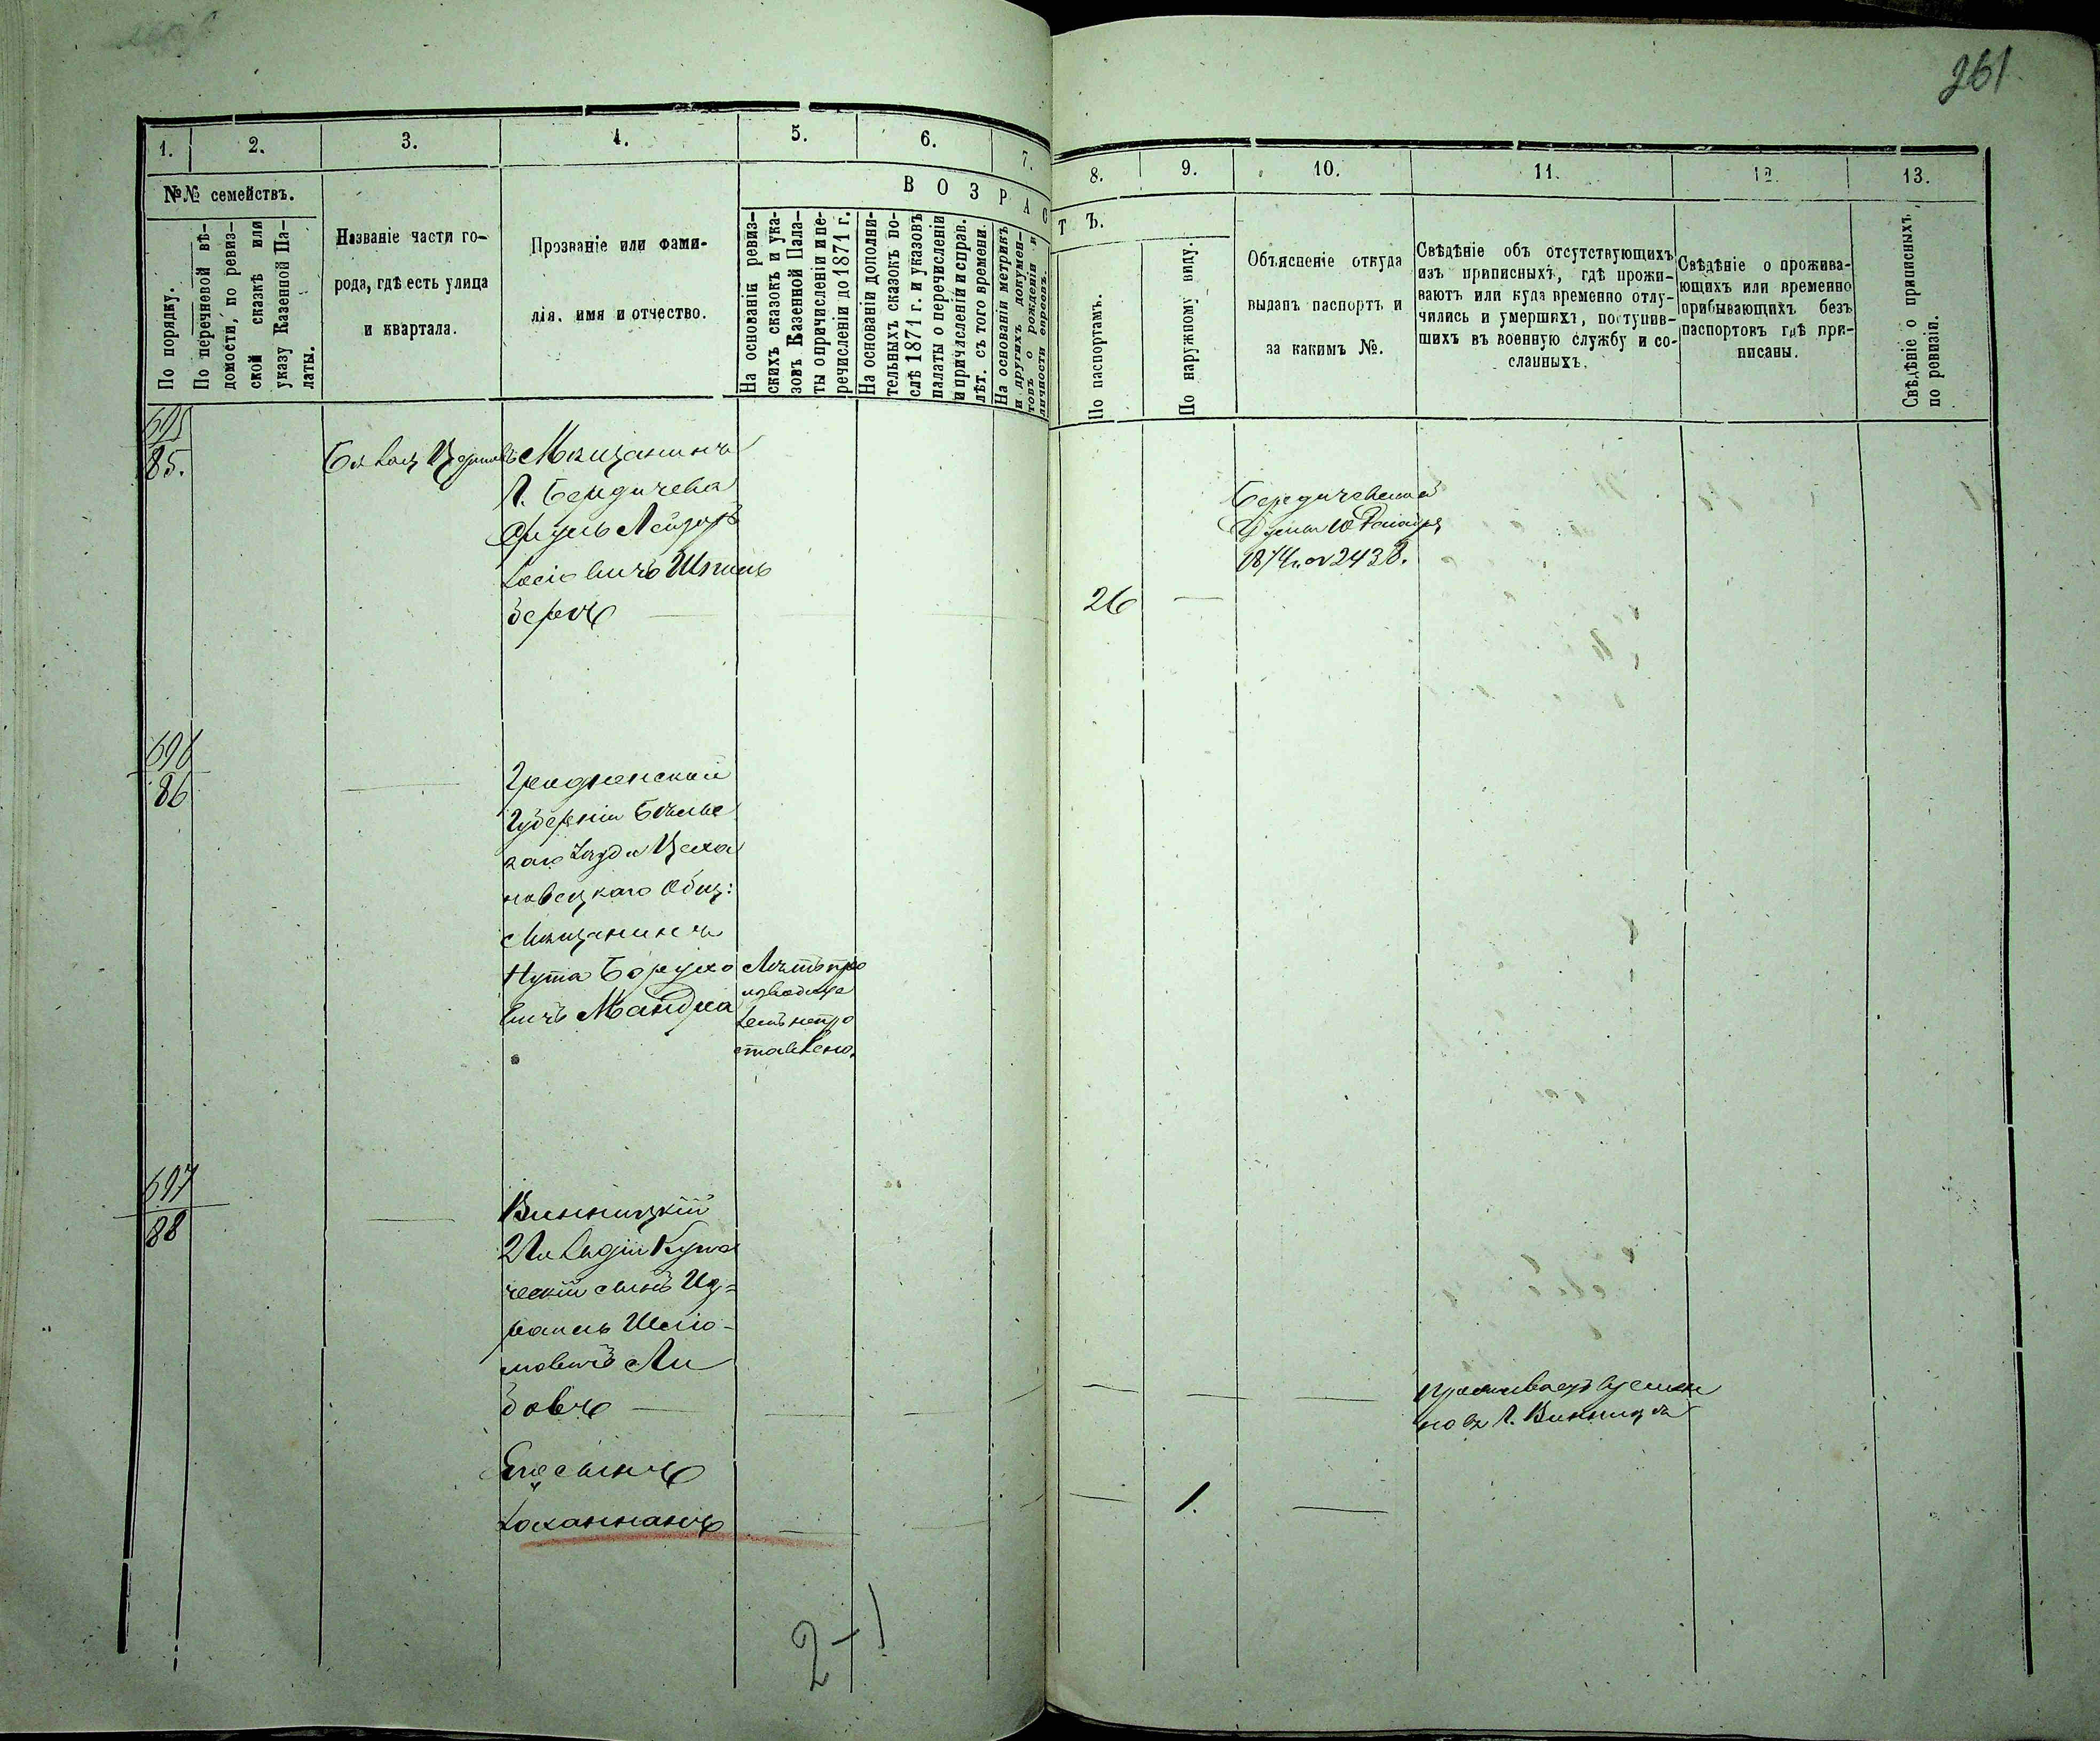 261
1. 2. 3. 4. 5. 6. 7. 8. 9. 10. 11. 12. 13.
№№ семействъ.
По порядку.
По перечневой вѣ-
домости, по ревиз-
ской сказкѣ или
указу Казенной Па-
латы.
Названіе части го-
рода, гдѣ есть улица
и квартала.
Прозваніе или фами-
лія, имя и отчество.
ВОЗРАСТЪ.
На основаніи ревиз-
скихъ сказокъ и ука-
зовъ Казенной Пала-
ты о причисленіи и пе-
речисленіи до 1871 г.
На основаніи дополни-
тельныхъ сказокъ по-
слѣ 1871 г. и указовъ
палаты о перечисленіи
и причисленіи и справ.
лѣт. съ того времени.
На основаніи метрикъ
и другихъ докумен-
товъ о рожденіи и
личности евреевъ.
По паспортамъ.
По наружному виду.
Объясненіе откуда
выданъ паспортъ и
за какимъ №.
Свѣдѣніе объ отсутствующихъ
изъ приписныхъ, гдѣ прожи-
ваютъ или куда временно отлу-
чились и умершихъ, поступив-
шихъ въ военную службу и со-
сланныхъ.
Свѣдѣніе о прожива-
ющихъ или временно
прибывающихъ безъ
паспортовъ гдѣ при-
писаны.
Свѣдѣніе о приписныхъ
по ревизіи.
695
85.
Мѣщанинъ
г. Бердичева
Лейзоръ
Шпиль
бергъ
26 —
Бердичевской
Думы 10
1874 г. № 2438.
696
86
Гродненской
Губерніи Бѣльс
каго Уезда Цеха
новецкаго Общ:
Мѣщанинъ
Нута Борухо
вичъ
Лѣтъ про
изводица
ставлено.
697
88
Винницкій
2й Гилдіи Купе
ческій сынъ Из=
раиль Шлио-
мовичъ Ли
бовъ —
проживаетъ времен
но въ г. Винница
Его сынъ
Іоханнанъ
1.
2-1